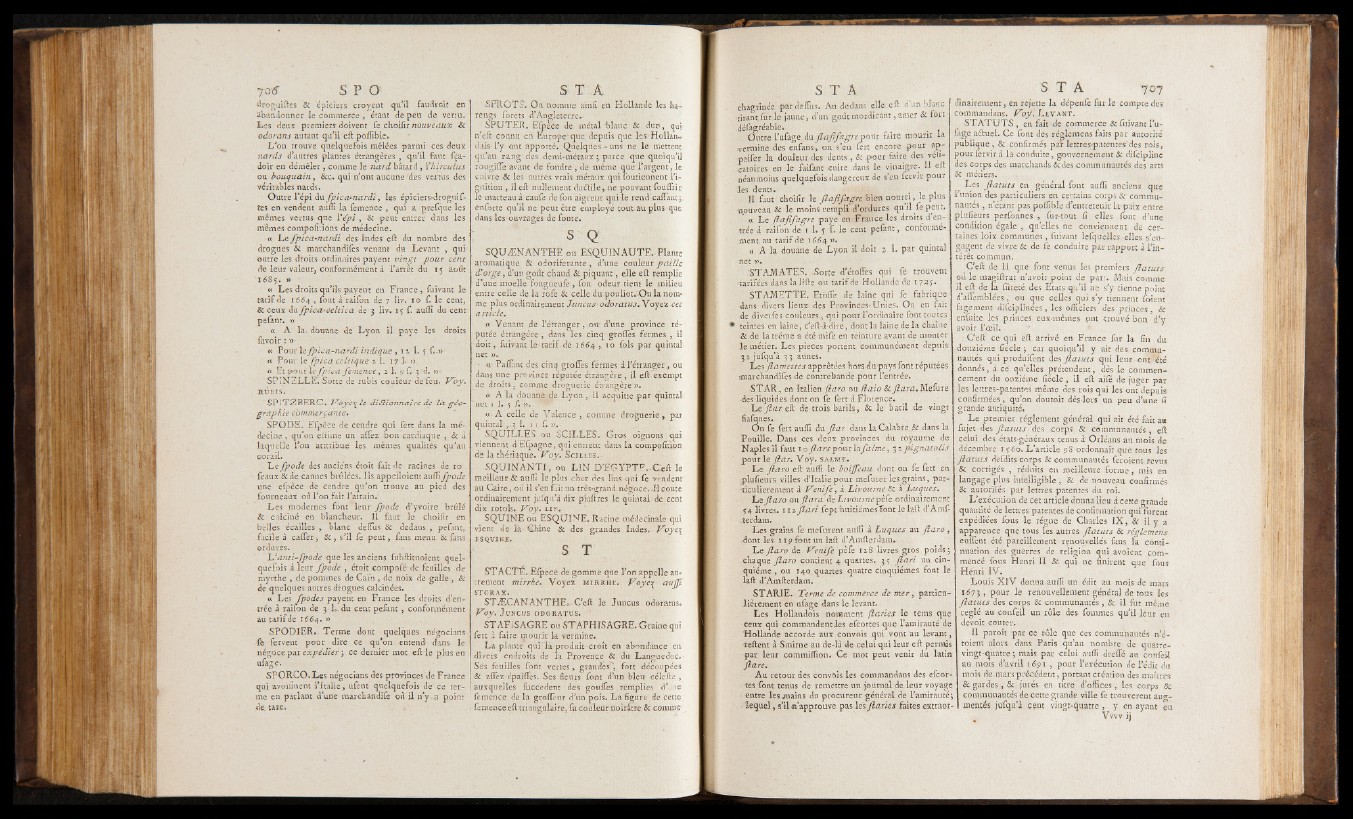 706 S P O
droguistes & épiciers croyent qu'il faudroit en
abandonner le commerce, étant de peu de vertu.
Les deux premiers doivent se choisir nouveaux &
odorans autant qu'il est possible.
L'on trouve quelquefois mêlées parmi ces deux
nards d'autres plantes étrangères, qu'il faut sça-
voir en démêler, comme le nard bâtard, l'hirculus
ou bouquain, &c. qui n'ont aucune des vertus des
véritables nards.
Outre l'épi du spica-nardi, les épiciers-droguis-
tes en vendent aussi la semence, qui a presque les
mêmes vertus que l'épi, & peut entrer dans les
mêmes compositions de médecine.
« Le spica-nardi des Indes est du nombre des
drogues & marchandises venant du Levant, qui
outre les droits ordinaires payent vingt pour cent
de leur valeur, conformément à l'arrêt du 15 août
1685. »
« Les droits qu'ils payent en France, suivant le
tarif de 1664, sont à raison de 7 liv. 10 s. le cent,
& ceux du spica-celtica de 3 liv. 15 s. aussi du cent
pesant. »
« A la douane de Lyon il paye les droits
savoir : »
« Pour le spica-nardi indique, 12 l. 5 s. »
« Pour le spica celtique 2 l. 17 s. »
« Et pour le spica semence, 2 l. 5 s. 3 d. »
SPINELLE. Sorte de rubis couleur de feu. Voy.
RUBIS.
SPITZBERG. Voyez le dictionnaire de la géo-
graphie commerçante.
SPODE. Espèce de cendre qui sert dans la mé-
decine, qu'on estime un assez bon cardiaque, & à
laquelle l'on attribue les mêmes qualités qu'au
corail.
Le spode des anciens étoit fait de racines de ro-
seaux & de cannes brûlées. Ils appelloient aussi spode
une espèce de cendre qu'on trouve au pied des
fourneaux où l'on fait l'airain.
Les modernes font leur spode d'yvoire brûlé
& calciné en blancheur. Il faut le choisir en
belles écailles, blanc dessus & dedans, pesant,
facile à casser, &, s'il se peut, sans menu & sans
ordures.
L'anti-spode que les anciens substituoient quel-
quefois à leur spode, étoit composé de feuilles de
myrthe, de pommes de Cain, de noix de galle, &
de quelques autres drogues calcinées.
« Les spodes payent en France les droits d'en-
trée à raison de 3 l. du cent pesant, conformément
au tarif de 1664. »
SPODIER. Terme dont quelques négocians
se servent pour dire ce qu'on entend dans le
négoce par expédier ; ce dernier mot est le plus en
usage.
SPORCO. Les négocians des provinces de France
qui avoisinent l'Italie, usent quelquefois de ce ter-
me en parlant d'une marchandise où il n'y a point
de tare.
S T A
SPROTS. On nomme ainsi en Hollande les ha-
rengs sorets d'Angleterre.
SPUTER. Espèce de métal blanc & dur, qui
n'est connu en Europe que depuis que les Hollan-
dais l'y ont apporté. Quelques-uns ne le mettent
qu'au rang des demi-métaux ; parce que quoiqu'il
rougisse avant de fondre, de même que l'argent, le
cuivre & les autres vrais métaux qui soutiennent l'i-
gnition, il est nullement ductile, ne pouvant souffrir
le marteau à cause de son aigreur qui le rend cassant ;
ensorte qu'il ne peut être employé tout au plus que
dans les ouvrages de fonte.
S Q
SQUÆNANTHE ou ESQUINAUTE. Plante
aromatique & odoriférante, d'une couleur paille
d'orge, d'un goût chaud & piquant, elle est remplie
d'une moelle fongueuse, son odeur tient le milieu
entre celle de la rose & celle du pouliot. On la nom-
me plus ordinairement Juncus odoratus. Voyez cet
article.
« Venant de l'étranger, ou d'une province ré-
putée étrangère, dans les cinq grosses fermes, il
doit, suivant le tarif de 1664, 10 sols par quintal
net ».
« Passant des cinq grosses fermes à l'étranger, ou
dans une province réputée étrangère, il est exempt
de droits, comme droguerie étrangère ».
« A la douane de Lyon, il acquitte par quintal
net 1 l. 5 s. ».
« A celle de Valence, comme droguerie, par
quintal, 3 l. 11 s. ».
SQUILLES ou SCILLES. Gros oignons qui
viennent d'Espagne, qui entrent dans la composition
de la thériaque. Voy. SCILLES.
SQUINANTI, ou LIN D'EGYPTE. C'est le
meilleur & aussi le plus cher des lins qui se vendent
au Caire, où il s'en fait un très-grand négoce. Il coute
ordinairement jusqu'à dix piastres le quintal de cent
dix rotols. Voy. LIN.
SQUINE ou ESQUINE. Racine médecinale qui
vient de la Chine & des grandes Indes. Voyez
ESQUINE.
S T
STACTÉ. Espece de gomme que l'on appelle au-
trement mirrhe. Voyez MIRRHE. Voyez aussi
STORAX.
STÆCANANTHE. C'est le Juncus odoratus.
Voy. JUNCUS ODORATUS.
STAFISAGRE ou STAPHISAGRE. Graine qui
sert à faire mourir la vermine.
La plante qui la produit croît en abondance en
divers endroits de la Provence & du Languedoc.
Ses feuilles sont vertes, grandes, fort découpées
& assez épaisses. Ses fleurs sont d'un bleu céleste,
auxquelles succedent des gousses remplies d'une
semence de la grosseur d'un pois. La figure de cette
semence est triangulaire, sa couleur noirâtre & comme
S T A
chagrinée par dessus. Au dedans elle est d'un blanc
tirant sur le jaune, d'un goût mordicant, amer & fort
désagréable.
Outre l'usage du stafisagre pour faire mourir la
vermine des enfans, on s'en sert encore pour ap-
paiser la douleur des dents, & pour faire des vési-
catoires en le faisant cuire dans le vinaigre. Il est
néanmoins quelquefois dangereux de s'en servir pour
les dents.
Il faut choisir le stafisagre bien nourri, le plus
nouveau & le moins rempli d'ordures qu'il se peut.
« Le stafisagre paye en France les droits d'en-
trée à raison de 1 l. 5 s. le cent pesant, conformé-
ment au tarif de 1664 ».
« A la douane de Lyon il doit 2 l. par quintal
net ».
STAMATES. Sorte d'étoffes qui se trouvent
tarifées dans la liste ou tarif de Hollande de 1725.
STAMETTE. Etoffe de laine qui se fabrique
dans divers lieux des Provinces-Unies. On en fait
de diverses couleurs, qui pour l'ordinaire sont toutes
teintes en laine, c'est-à-dire, dont la laine de la chaîne
& de la trême a été mise en teinture avant de monter
le métier. Les pieces portent communément depuis
32 jusqu'à 33 aunes.
Les stamettes apprêtées hors du pays sont réputées
marchandises de contrebande pour l'entrée.
STAR, en Italien staro ou staio & stara. Mesure
des liquides dont on se sert à Florence.
Le star est de trois barils, & le baril de vingt
fiasques.
On se sert aussi du star dans la Calabre & dans la
Pouille. Dans ces deux provinces du royaume de
Naples il faut 10 stars pour la salme, 32 pignatolis
pour le star. Voy. SALME.
Le staro est aussi le boisseau dont on se sert en
plusieurs villes d'Italie pour mesurer les grains, par-
ticulierement à Venise, à Livourne & à Luques.
Le staro ou stara de Livourne pése ordinairement
54 livres. 112 stari sept huitiémes font le last d'Ams-
terdam.
Les grains se mesurent aussi à Luques au staro,
dont les 119 font un last d'Amsterdam.
Le staro de Venise pèse 128 livres gros poids ;
chaque staro contient 4 quartes. 35 stari un cin-
quième, ou 140 quartes quatre cinquièmes font le
last d'Amsterdam.
STARIE. Terme de commerce de mer, particu-
liérement en usage dans le levant.
Les Hollandois nomment staries le tems que
ceux qui commandent les escortes que l'amirauté de
Hollande accorde aux convois qui vont au levant,
restent à Smirne au de-là de celui qui leur est permis
par leur commission. Ce mot peut venir du latin
stare.
Au retour des convois les commandans des escor-
tes sont tenus de remettre un journal de leur voyage
entre les mains du procureur général de l'amirauté ;
lequel, s'il n'approuve pas les staries faites extraor-
S T A 707
dinairement, en rejette la dépense sur le compte des
commandans. Voy. LEVANT.
STATUTS, en fait de commerce & suivant l'u-
sage actuel. Ce sont des réglemens faits par autorité
publique, & confirmés par lettres-patentes des rois,
pour servir à la conduite, gouvernement & discipline
des corps des marchands & des communautés des arts
& métiers.
Les statuts en général sont aussi anciens que
l'union des particuliers en certains corps & commu-
nautés, n'étant pas possible d'entretenir la paix entre
plusieurs personnes, sur-tout si elles sont d'une
condition égale, qu'elles ne conviennent de cer-
taines loix communes, suivant lesquelles elles s'en-
gagent de vivre & de se conduire par rapport à l'in-
térêt commun.
C'est de là que sont venus les premiers statuts
où le magistrat n'avoit point de part. Mais comme
il est de la sûreté des Etats qu'il ne s'y tienne point
d'assemblées, ou que celles qui s'y tiennent soient
sagement disciplinées, les officiers des princes, &
ensuite les princes eux-mêmes ont trouvé bon d'y
avoir l'œil.
C'est ce qui est arrivé en France sur la fin du
douzième siècle ; car quoiqu'il y ait des commu-
nautés qui produisent des statuts qui leur ont été
donnés, à ce qu'elles prétendent, dès le commen-
cement du onzième siècle, il est aisé de juger par
les lettres-patentes même des rois qui les ont depuis
confirmées, qu'on doutoit dès-lors un peu d'une si
grande antiquité.
Le premier réglement général qui ait été fait au
sujet des statuts des corps & communautés, est
celui des états-généraux tenus à Orléans au mois de
décembre 1560. L'article 98 ordonnait que tous les
statuts desdits corps & communautés seroient revus
& corrigés, réduits en meilleure forme, mis en
langage plus intelligible, & de nouveau confirmés
& autorisés par lettres patentes du roi.
L'exécution de cet article donna lieu à cette grande
quantité de lettres patentes de confirmation qui furent
expédiées sous le règne de Charles IX, & il y a
apparence que tous les autres statuts & réglemens
eussent été pareillement renouvellés sans la conti-
nuation des guerres de religion qui avoient com-
mencé sous Henri II & qui ne finirent que sous
Henri IV.
Louis XIV donna aussi un édit au mois de mars
1673, pour le renouvellement général de tous les
statuts des corps & communautés, & il fut même
réglé au conseil un rôle des sommes qu'il leur en
devoit couter.
Il paroît par ce rôle que ces communautés n'é-
toient alors dans Paris qu'au nombre de quatre-
vingt-quatre ; mais par celui aussi dressé au conseil
au mois d'avril 1691, pour l'exécution de l'édit du
mois de mars précédent, portant création des maîtres
& gardes, & jurés en titre d'offices, les corps &
communautés de cette grande ville se trouverent aug-
mentés jusqu'à cent vingt-quatre, y en ayant eu
Vvvv ij